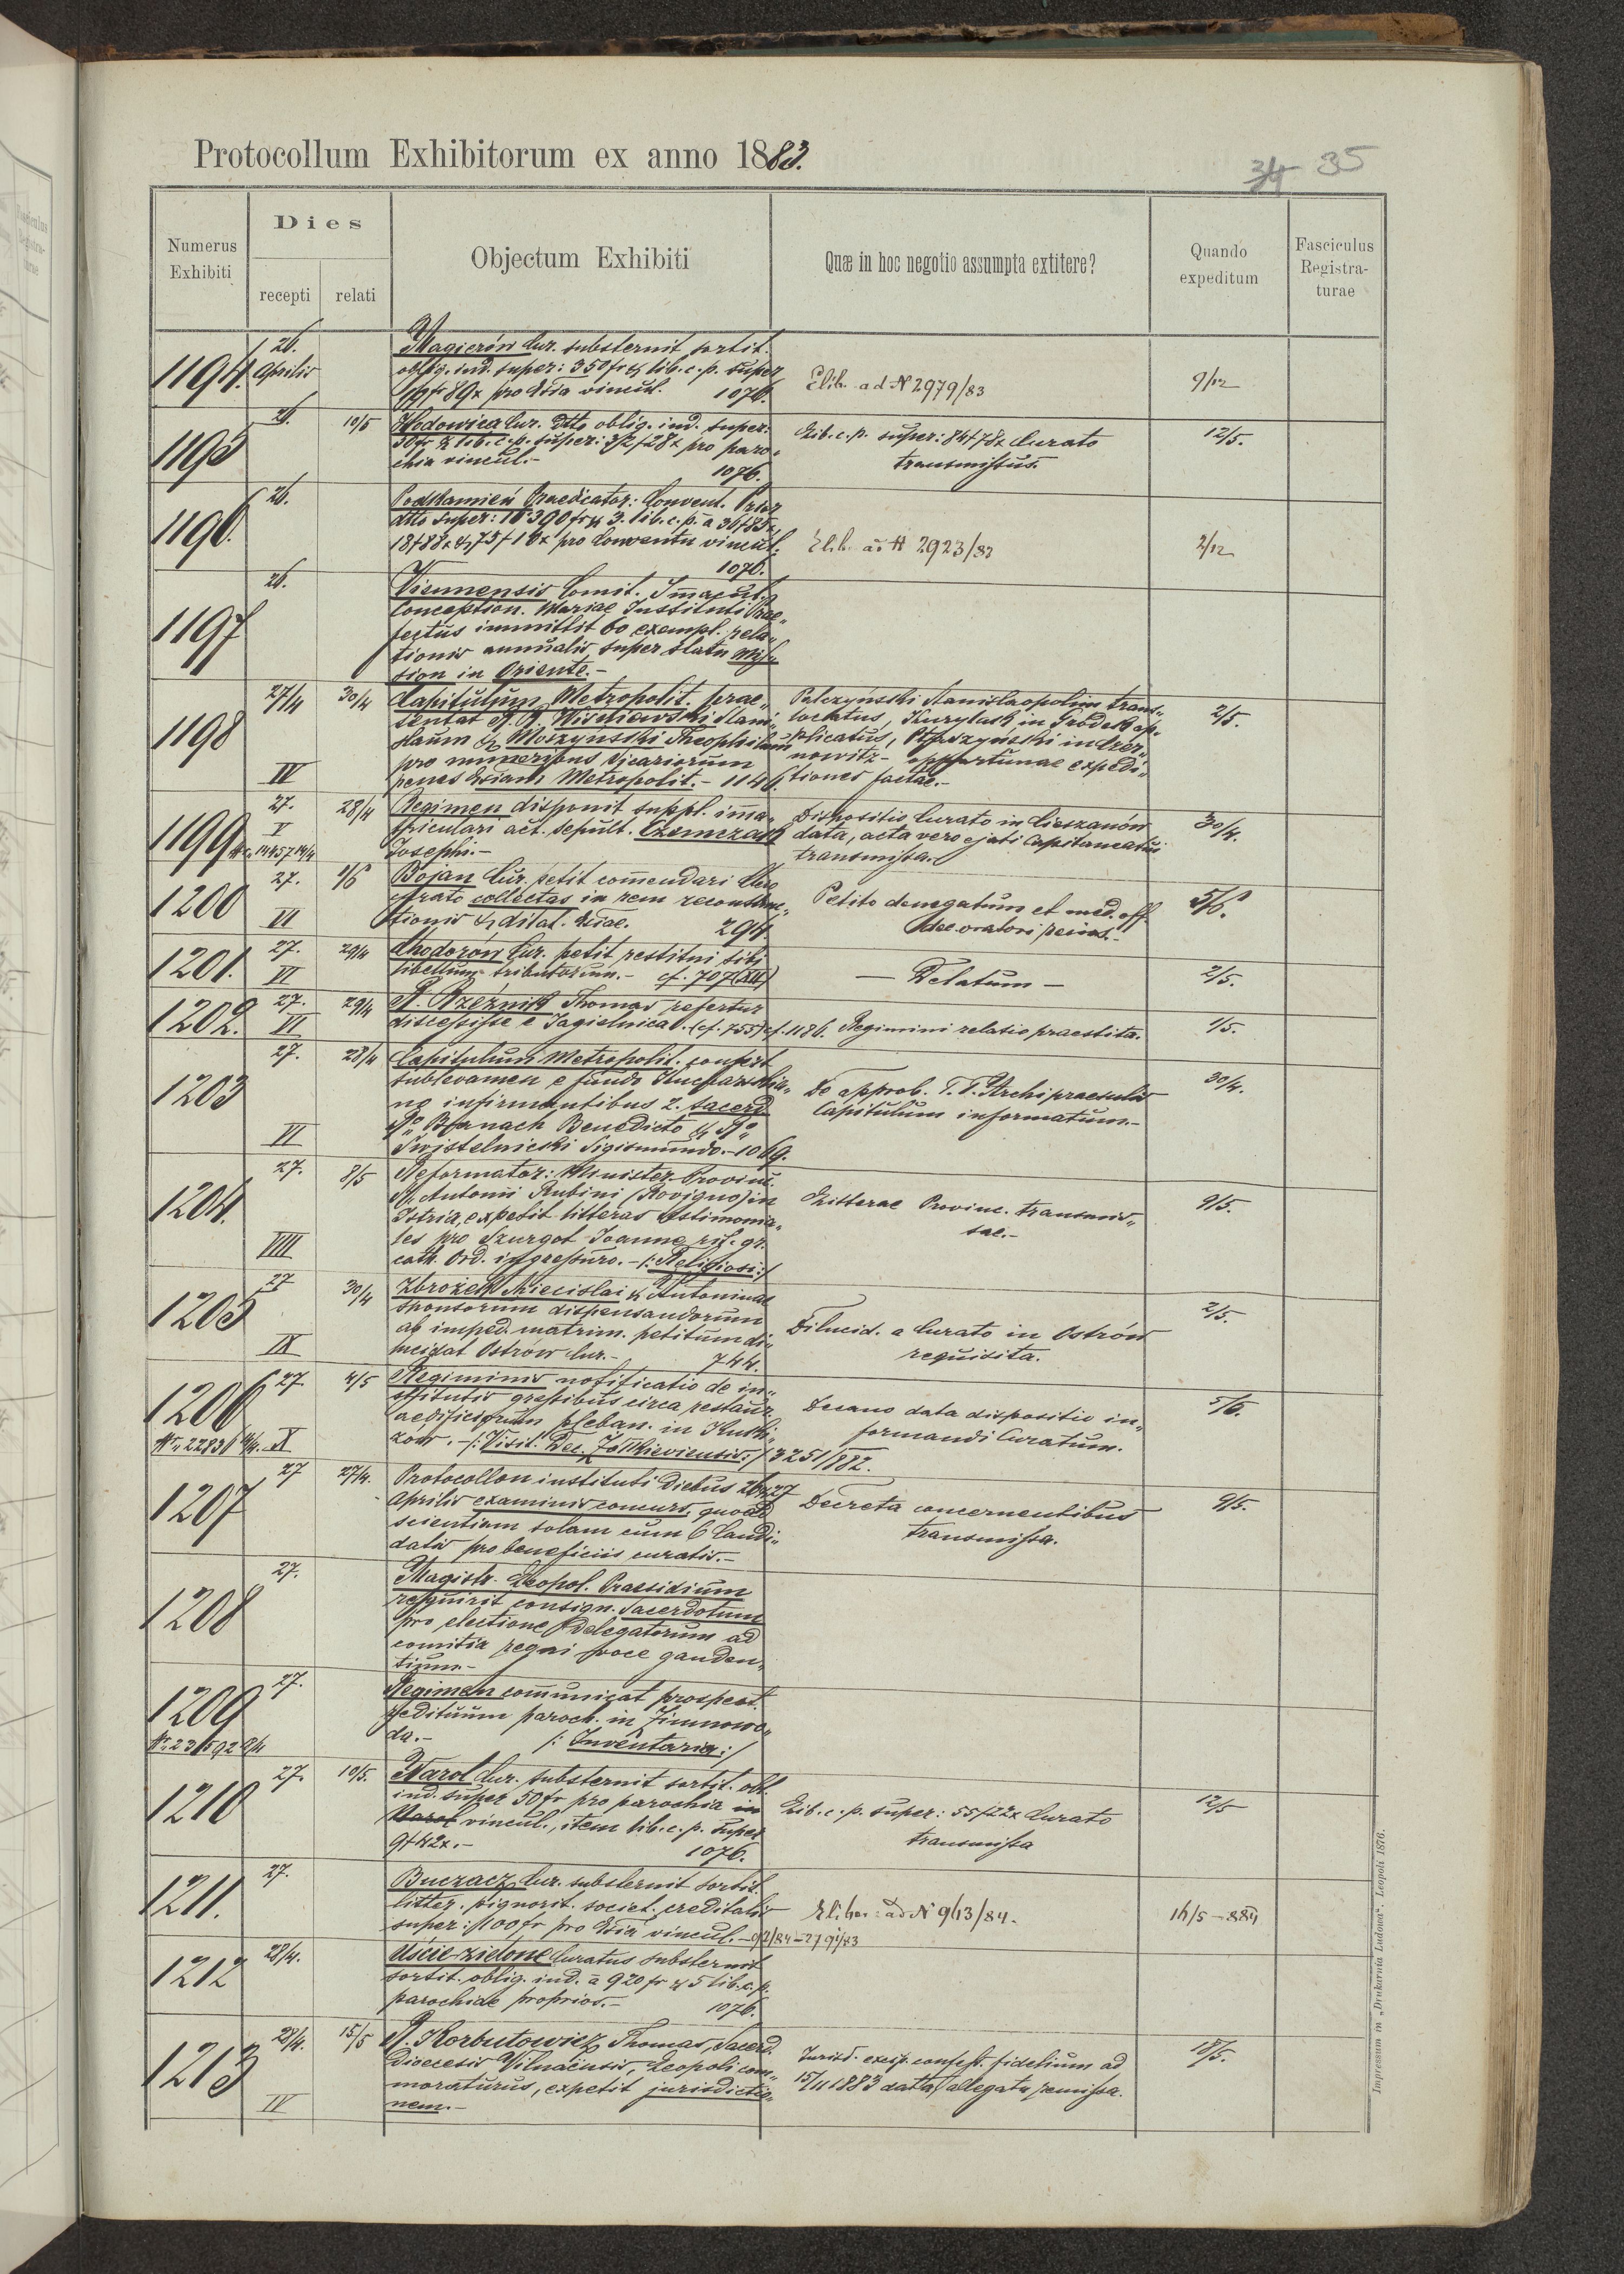 Protocollum Exhibitorum ex anno 1883.
34 35
Numerus Exhibiti
Dies
recepti relati
Objectum Exhibiti
Quæ in hoc negotio assumpta extitere?
Quando expeditum
Fasciculus Registra-turae
1194. 26. Aprilis
Magierów Cur. substernit sortit.
oblig. ind. super: 350 fr & lib. c. p. super
89x pro vincul. 1076.
Elib. ad N 2979/83
9/12
1195 26. 10/5
Hodowica Cur. dtto oblig. ind. super:
50 fr & lib. c. p. super: 3/2 f 28x pro paro„
chia vincul.- 1076.
Lib. c. p. super: 84 f 78x Curato
transmissus.
12/5.
1196. 26.
Podkamień Praedicator: Convent. Prior
dtto super: 10390 fr & 3. lib. c. p. a 36 f 85x,
18 f 88x & 75 f 18x pro Conventu vincul.
1076.
Elib. ad N 2923/83
2/12
1197 26.
Viennensis Comit. Immacul.
Conception. Mariae Instituti Prae„
fectus immittit 60 exempl. rela„
tionis annualis super statu Miss
sion in Oriente.-
1198 27/4 30/4 IV
Capitulum Metropolit. prae„
sentat R. R. Wisniewski Stani„
slaum & Moszyński Theophilum
pro muneribus Vicariorum
penes Eccliam Metropolit.- 1146.
Palczyński Stanislaopolim trans„
locatus, Kurylask in Gródek ap„
plicatus, Ptaszyński in Czer„
nowitz- opportunae expedi„
tiones factae.-
2/5.
1199 27. 28/4 V
N. 14457 14/4
Regimen disponit suppl. imma„
triculari act. sepult. Czemerzak
Josephi.-
Dispositio Curato in Cieszanów
data, acta vero ejati Capitaneatui
transmissa.
30/4.
1200 27. 1/6 VI
Bojan Cur. petit commendari Clero
curato collectas in rem reconstruc„
tionis & dilat. Eccliae. 294
Petito denegatum et med. off.
dec. oratori
5/6.
1201. 27. 29/4 VI
Chodorów Cur. petit restitui sibi
libellum tributorum.- cf. 707 (XII)
— Delatum —
2/5.
1202. 27. 29/4 VI
R. Rzeźnik Thomas refertur
discessisse e Jagielnica. (cf. 755) cf. 1186.
Regimini relatio praestita.
1/5.
1203 27. 28/4 VI
Capitulum Metropolit. confert
sublevamen e fundo Kucharskia„
no infirmantibus 2. sacerd.
Rdo Banach Benedicto & Rdo
Swistelnicki Sigismundo.- 1069.
De approb. T. T. Archipraesulis
Capitulum informatum.-
30/4.
1204. 27. 8/5 VIII
Reformator: Minister Provinc.
R. Antonii Rubini (Rovigno) in
Istria, expetit litteras testimonia„
les pro Szurgot Joanne rit. gr.
cath. Ord. ingressuro.- /: Religiosi :/
Litterae Provinc. transmis„
sae.-
9/5.
1205 27 30/4 IX
Zbrożek Miecislai & Antoninae
sponsorum dispensandorum
ab imped. matrim. petitum di„
lucidat Ostrów Cur.- 744.
Dilucid. a Curato in Ostrów
requisita.
2/5.
1206 27. 4/5
N. 22836 X
Regiminis notificatio de in„
stitutis gressibus circa restaur.
aedificiorum pleban. in Kukli„
zow.- /: Visit. Dec. Żółkieviensis :/ 3251/882.
Decano data dispositio in„
formandi Curatum.
5/6.
1207 27 27/4.
Protocollon instituti diebus 26 & 27
Aprilis examinis concurs. quoad
scientiam solam cum 6 Candi„
datis pro beneficiis curatis.-
Decreta concernentibus
transmissa.
9/5.
1208 27.
Magistr. Leopol. Praesidium
requirit consign. Sacerdotum
pro electione Delegatorum ad
comitia regni voce gauden„
tium.-
1209 27.
N. 23592 9/4
Regimen communicat prospect.
redituum paroch. in Zimnowo„
da.- /: Inventaria :/
1210 27. 10/5.
Narol Cur. substernit sortit. obl.
ind. super 50 fr pro parochia in
Narol vincul., item lib. c. p. super
9 f 42x.- 1076.
Lib. c. p. super: 55 f 22x Curato
transmissa
12/5
1211. 27.
Buczacz Cur. substernit sortit.
litter. pignorit. societ. creditalis
super: 100 fr pro Ecclia vincul.- 92/84 - 2791/83
Elibor: ad N 913/84.
14/5 - 884
1212 28/4.
Uście zielone Curatus substernit
sortit. oblig. ind. a 920 fr & 5 lib. c. p.
parochiae proprios.- 1076.
1213 28/4. 15/5 IV
R. Korbutowicz Thomas, Sacerd.
Dioecesis Vilnaensis, Leopoli com„
moraturus, expetit jurisdictio„
nem.-
Jurisd. excip. confess. fidelium ad
15/11 1883 data, allegata remissa.
18/5.
Impressum in „Drukarnia Ludowa“. Leopoli 1876.